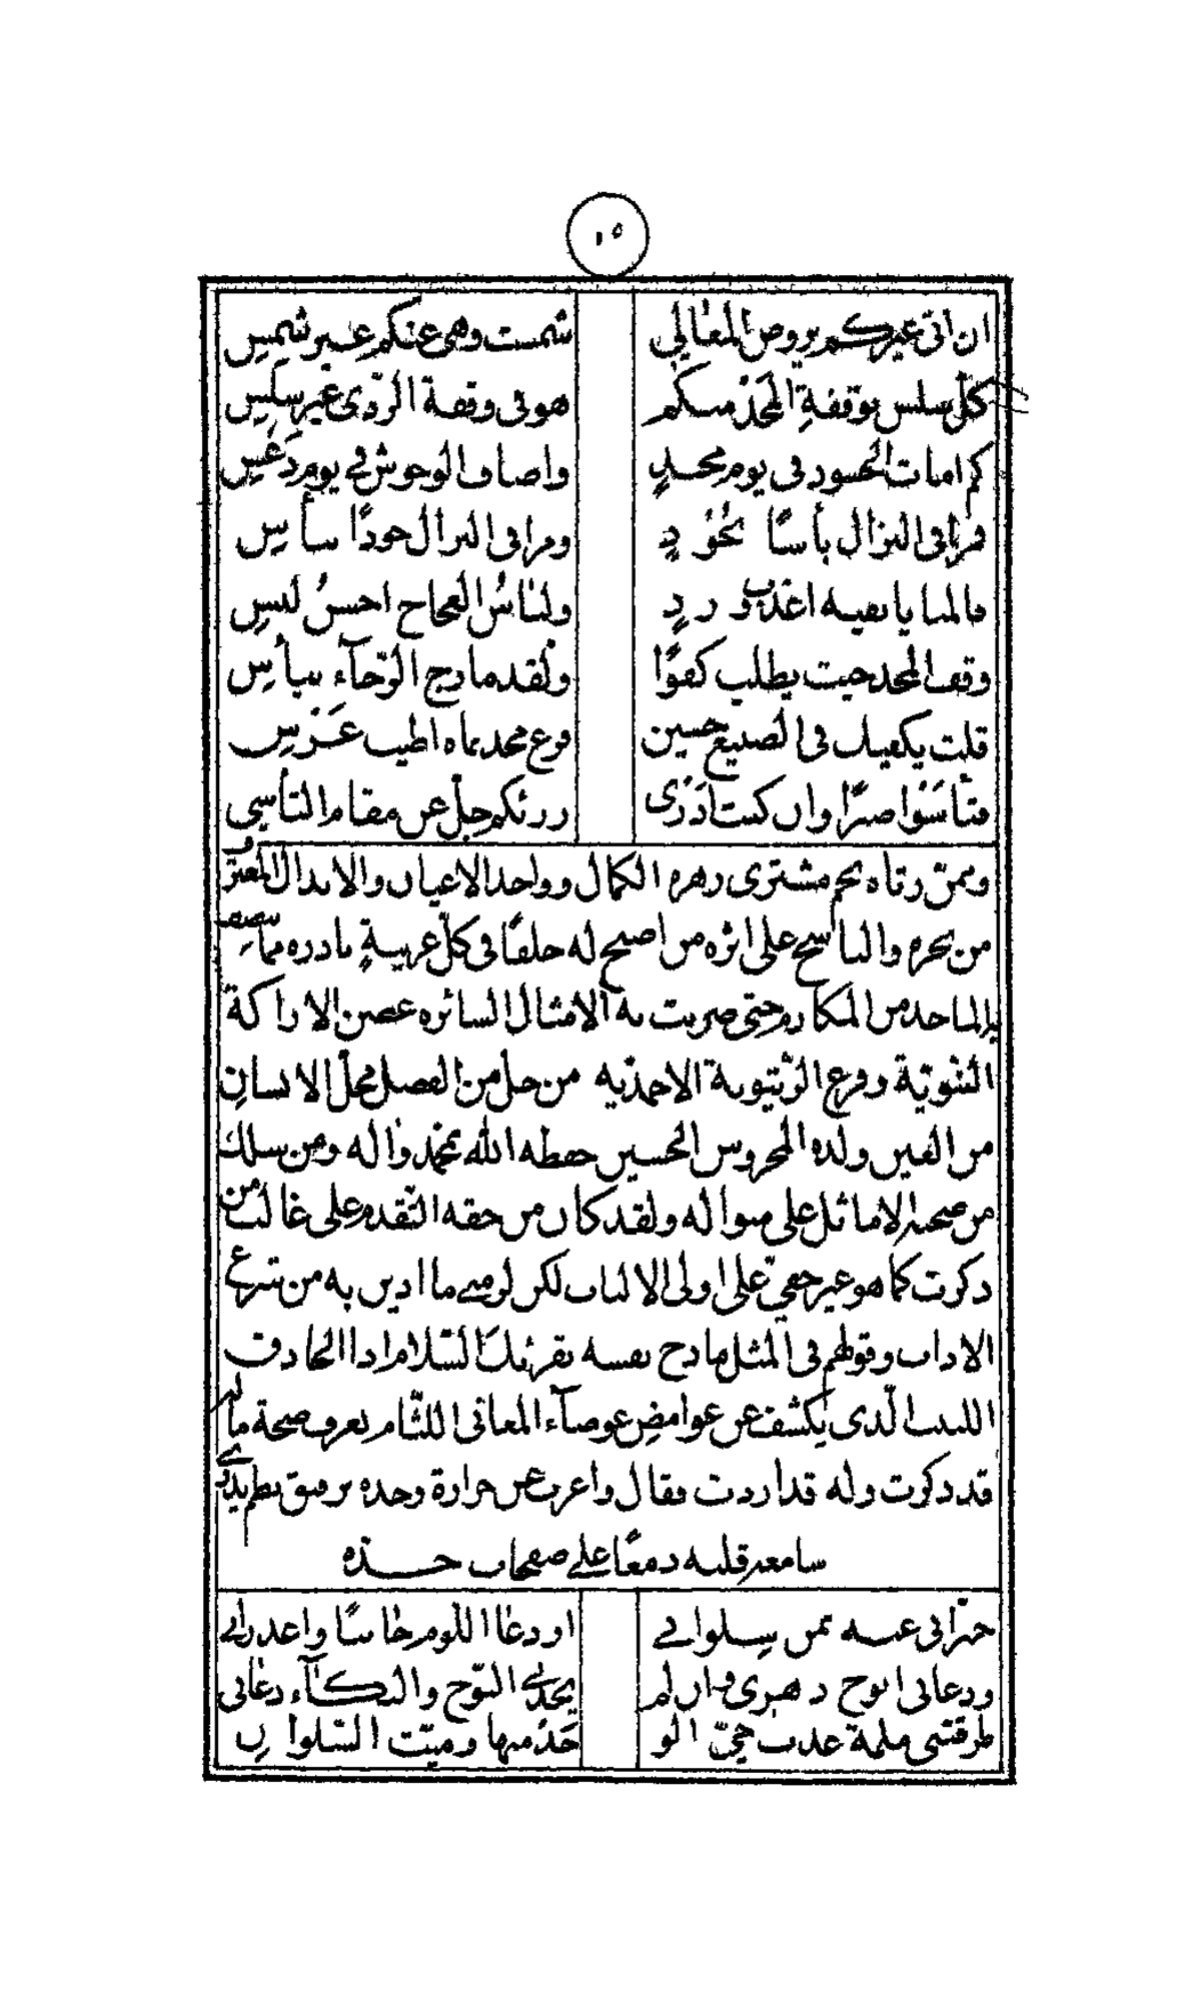 ١٥
ان اتى غيركم يروض المعالي شمست وهي عنكم غير شميس
كل سلس بوقفة المجد منكم هو في وقفة الردى غير سلس
كم امات الحسود في يوم محد واضاف الوحوش في يوم دعس
فرأى النزال بأسا بجود ومرا في النزال جودا ببأس
فالمنايا بفيه اعذب ورد ولباس العجاج احسن لبس
وقف المجد حيث يطلب كفوا ولقد مازج الرجاء بيأس
قلت يكفيك في الصنيع حسين فرع محمد نماه اطيب غرس
فتأسوا صبرا وان كنت ادرى رزئكم جل عن مقام التأسي
وممن رثاه نجم مشترى زهرة الكمال وواحد الاعيان والابدال المغترف
من بحره والناسج على اثره من اصبح له خلفا في كل غريبة نادره
الماجد من المكارم حتى ضربت به الامثال السائره غصن الاراكة
النبوية وفرع الزيتونة الاحمديه من حل من الفضل محل الانسان
من العين ولده المحروس الحسين حفظه الله بمحمد واله ومن سلك
من صحبه الاماثل على منواله ولقد كان من حقه التقدم على غالب من
ذكرت كما هو غير خفي على اولى الالباب لكن لو مي ما ادين به من شرع
الاداب وقولهم في المثل مادح نفسه يقرئك السلام اذا الحاذق
اللبيب الذي يكشف عن غوامض عوصاء المعاني اللثام يعرف صحة ما
قد ذكرت وله قد اردت فقال واعرب عن حرارة وجده برقيق نظم
سامعه قلبه دمعا على صفحات خده
خبراني عنه بمن سلواني او دعا اللوم جانبا واعذراني
ودعاني انوح دهري وان لم يجدني النوح والبكاء دعاني
طرقتني ملمة عدت حي الو جد منها وميت السلوان